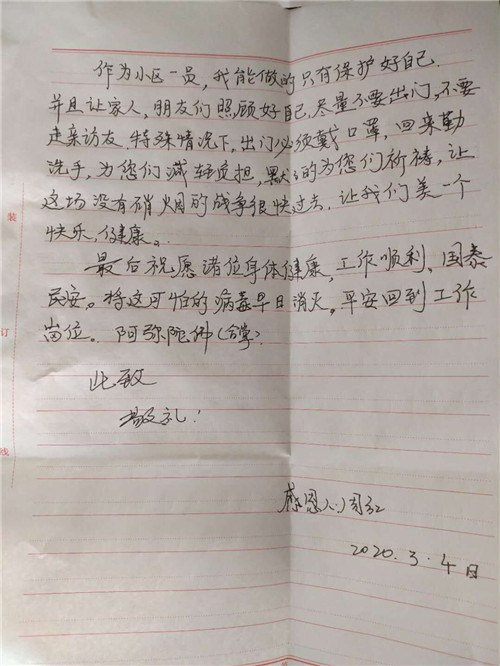 作为小区一员，我能做的只有保护好自己.
并且让家人，朋友们照顾好自己.尽量不要出门，不要
走亲访友.特殊情况下，出门必须戴口罩，回来勤
洗手，为您们减轻负担，默默的为您们祈祷，让
这场没有硝烟的战争很快过去.让我们美一个
快乐，健康。
最后祝愿诸位身体健康，工作顺利、国泰
民安。将这可怕的病毒早日消灭。平安回到工作
岗位。阿弥陀佛（合掌）
此致
敬礼！
感恩人：周红
2020.3.4日
装
订
线